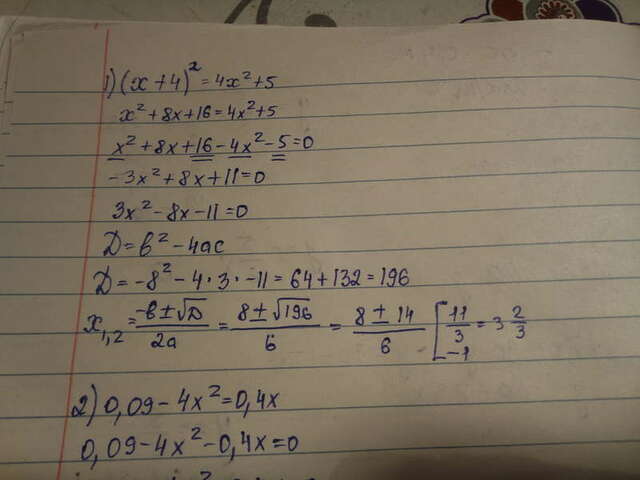 1) (x+4)² = 4x²+5
x²+8x+16=4x²+5
x²+8x+16-4x²-5=0
-3x²+8x+11=0
3x²-8x-11=0
D=b²-4ac
D=-8²-4·3·-11=64+132=196
x₁,₂ = (-b±√D)/2a = (8±√196)/6 = (8±14)/6 [ 11/3 = 3 2/3
-1
2) 0,09-4x²=0,4x
0,09-4x²-0,4x=0